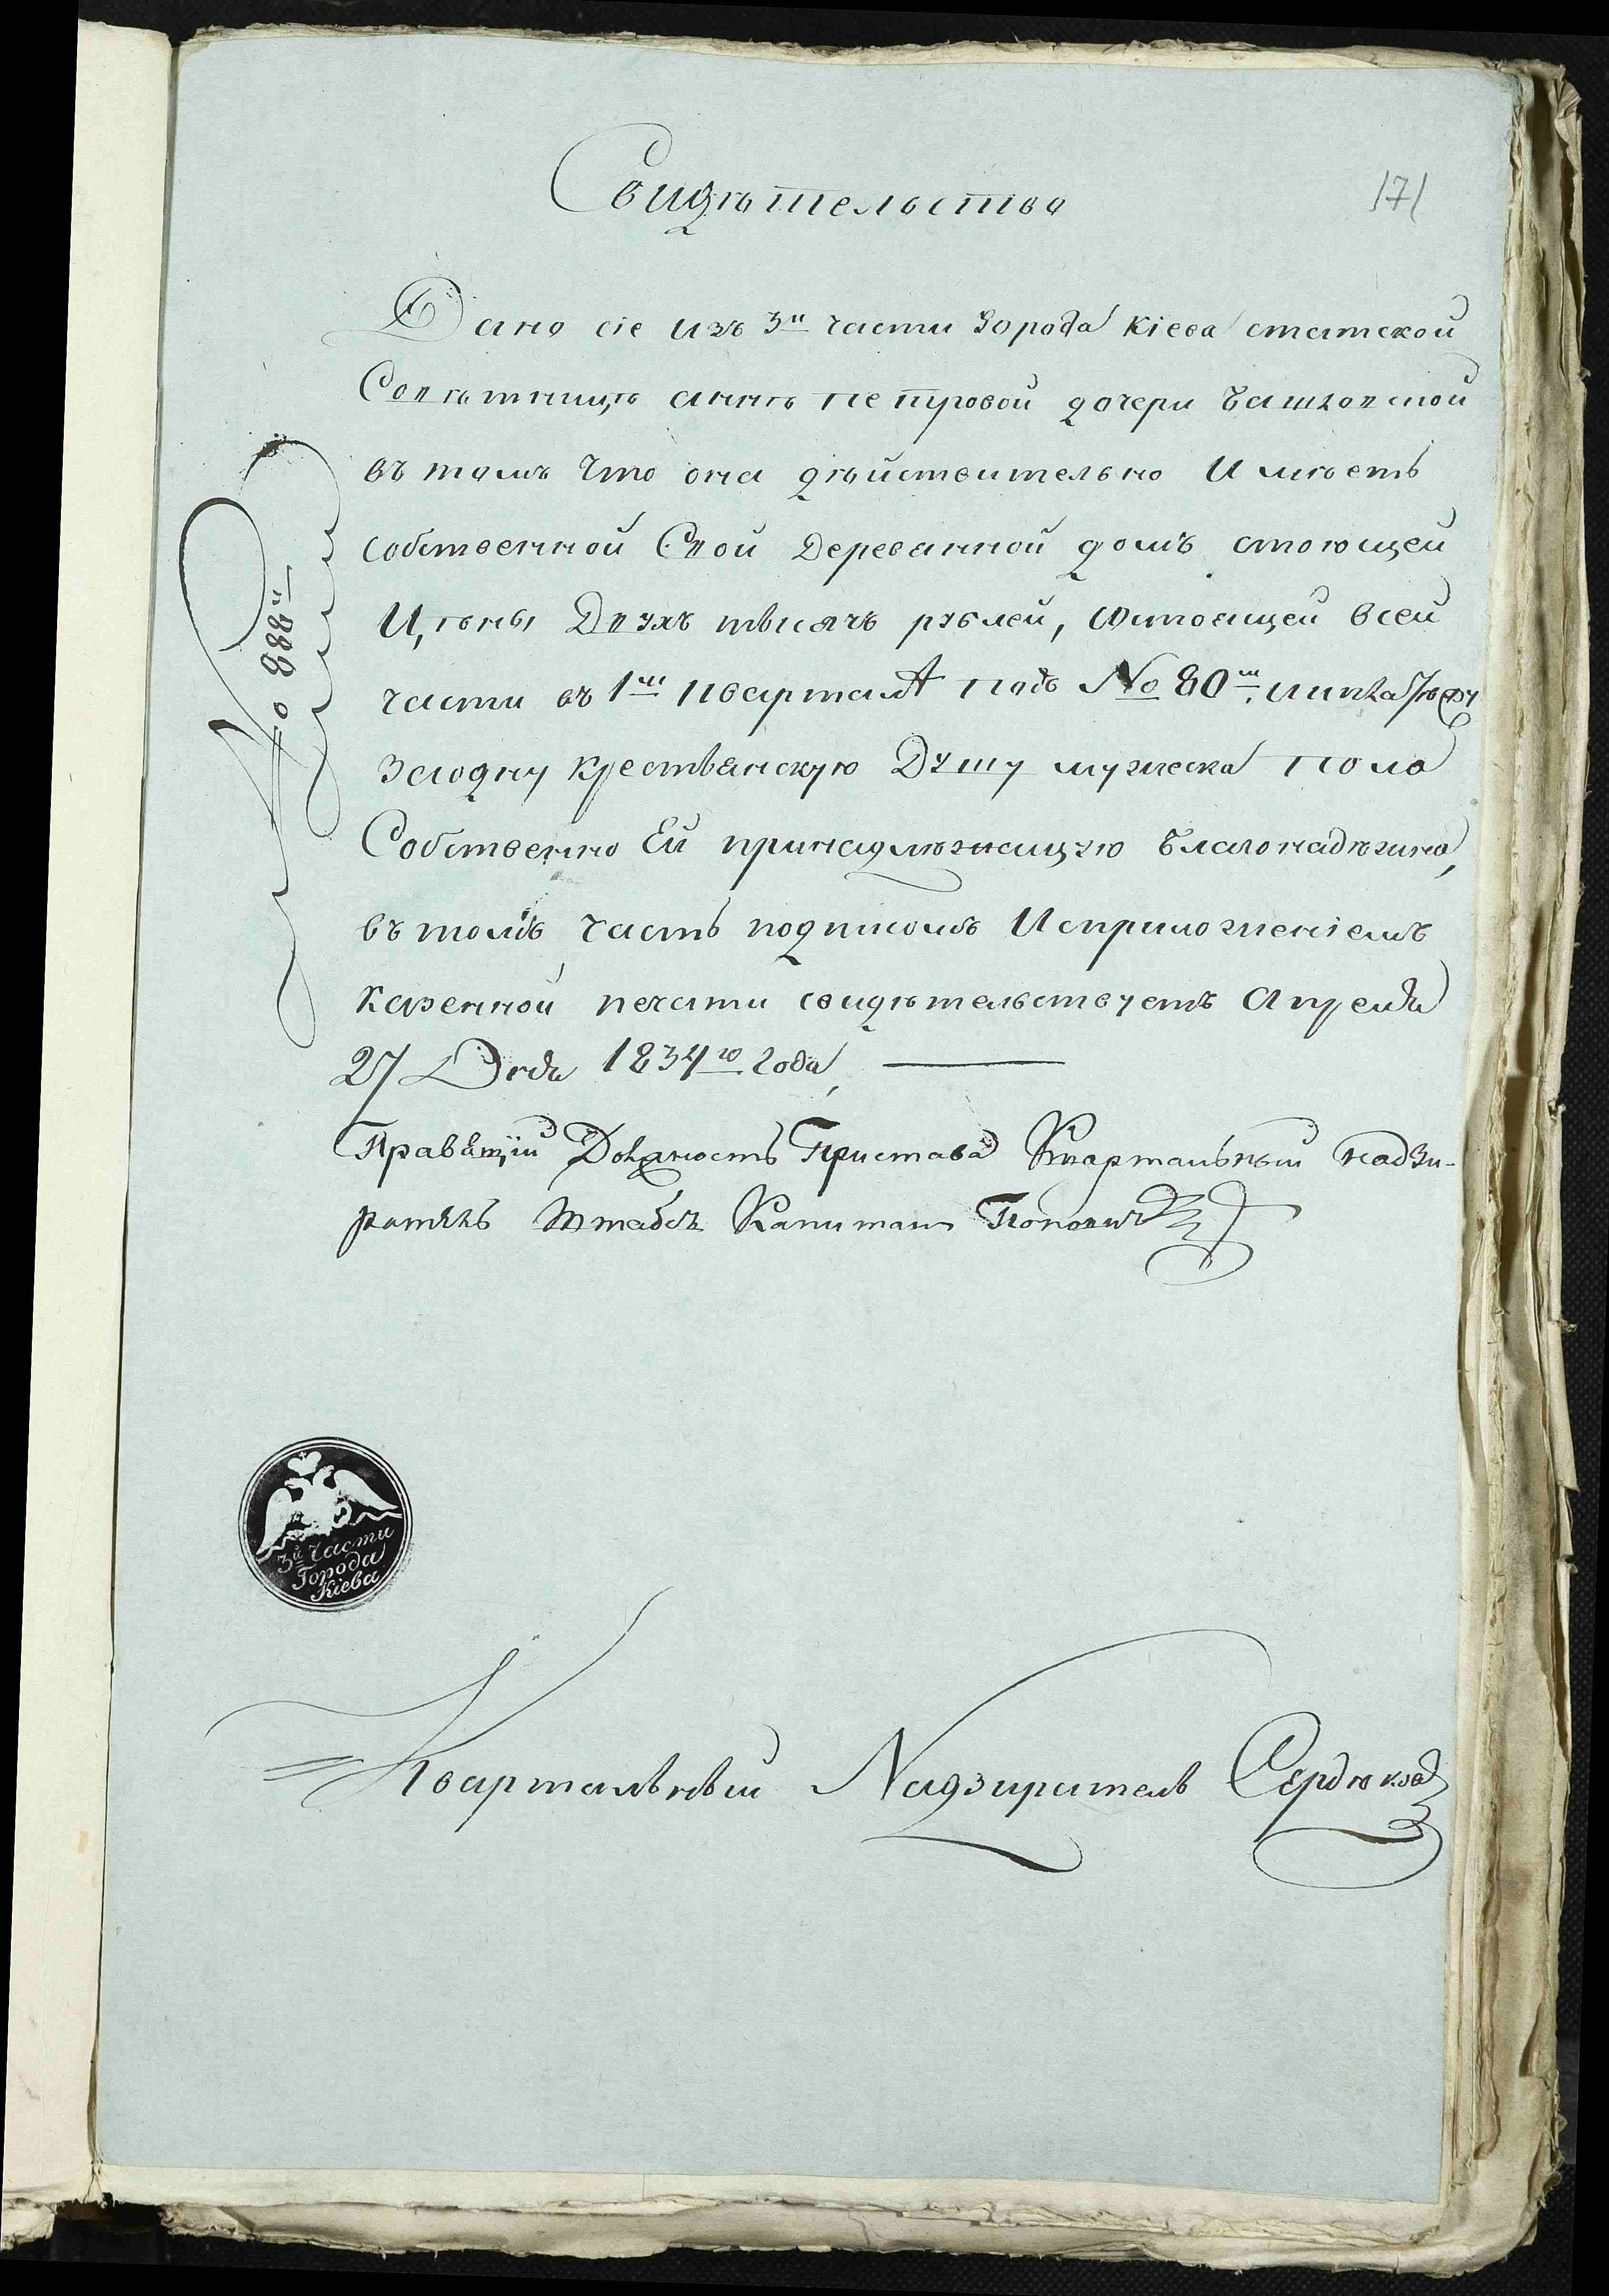 Свидѣтельство
171
Дано сіе изъ 3й части города Кіева статской
Совѣтницѣ Аннѣ Петровой дочери Башловской
въ томъ что она дѣйствительно имѣетъ
собственной Свой Деревянной домъ стоющей
Цѣны Двухъ тысячъ рублей, состоящей всей
части въ 1м кварталѣ подъ № 80м,
заодну крестьянскую Душу мужеска пола
Собственно Ей принадлѣжащую благонадѣжна,
въ томъ часть подписомъ Исприложеніемъ
казенной печати свидѣтельствуетъ Апреля
27 Дня 1834го Года,
Правящій Должность Пристава Квартальный надзи-
ратель Штабсъ Капитанъ Поповичъ
№ 888й
3й Части
Города
Кіева
Квартальный Надзиратель Сердюковъ